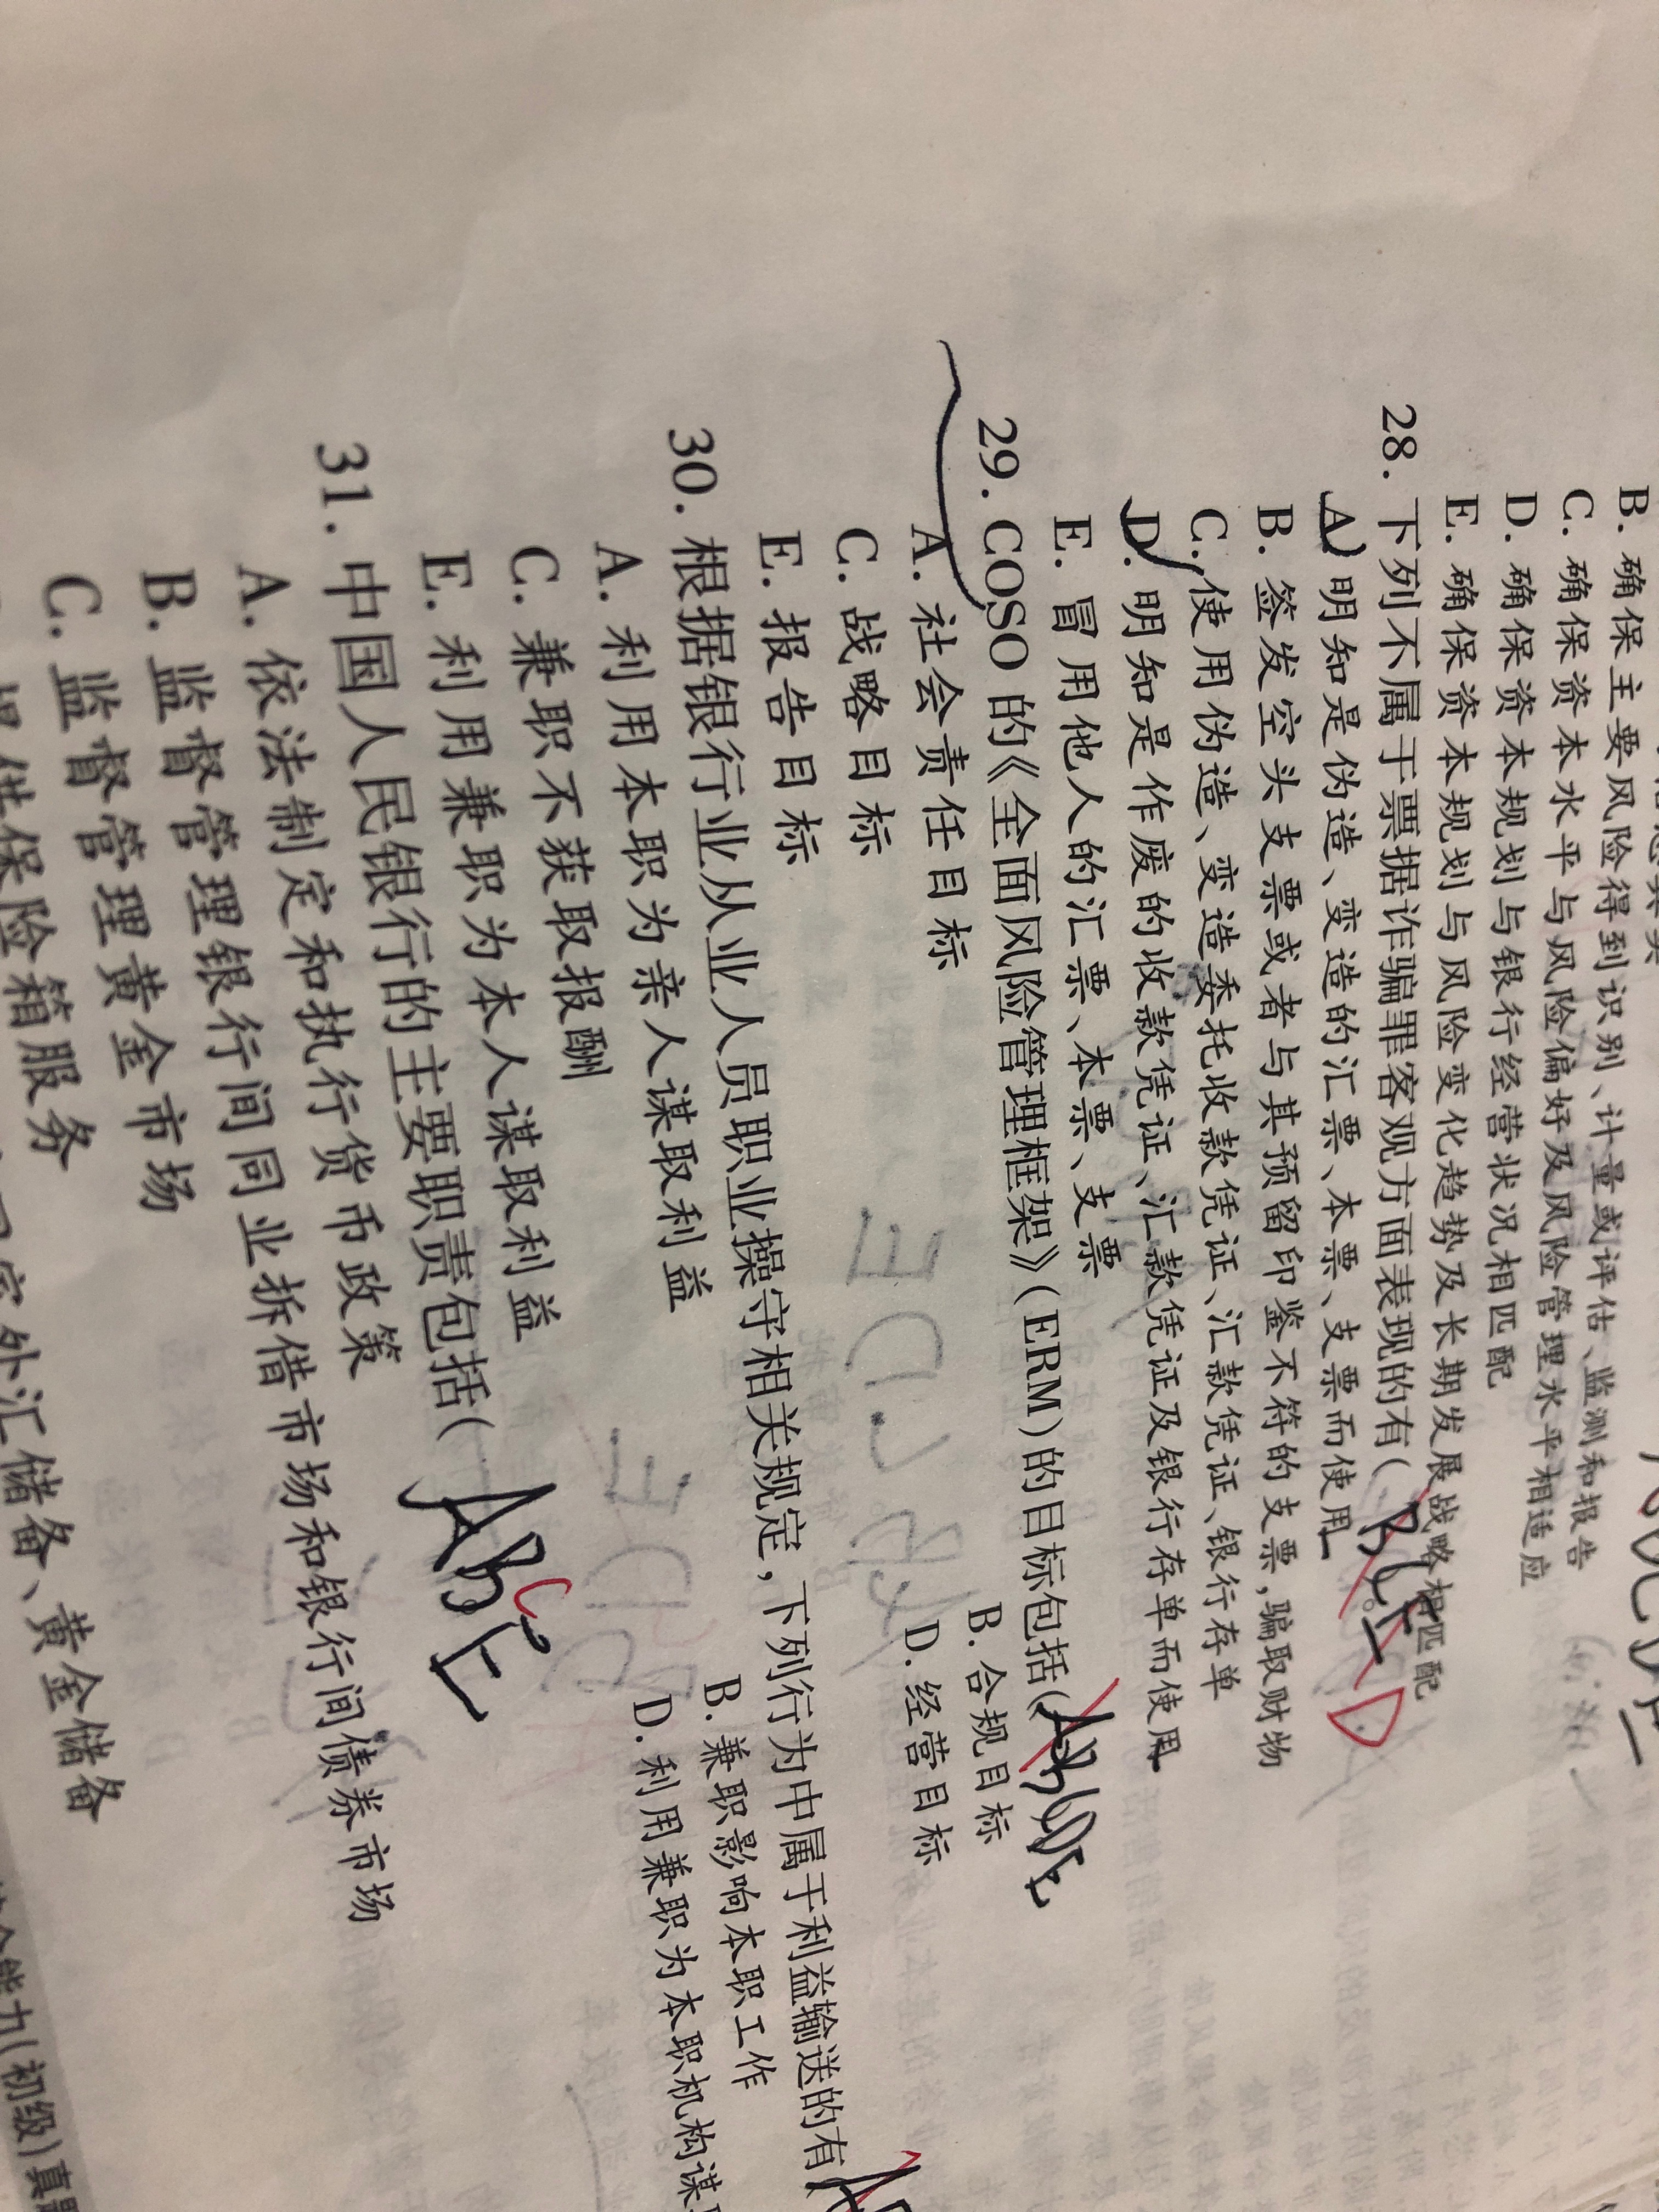 B. 确保主要风险得到识别、计量或评估、监测和报告
C. 确保资本水平与风险偏好及风险管理水平相适应
D. 确保资本规划与银行经营状况相匹配
E. 确保资本规划与风险变化趋势及长期发展战略相匹配
28. 下列不属于票据诈骗罪客观方面表现的有( BCE D
A. 明知是伪造、变造的汇票、本票、支票而使用
B. 签发空头支票或者与其预留印鉴不符的支票,骗取财物
C. 使用伪造、变造委托收款凭证、汇款凭证、银行存单
D. 明知是作废的收款凭证、汇款凭证及银行存单而使用
E. 冒用他人的汇票、本票、支票
29. COSO 的《全面风险管理框架》(ERM)的目标包括(
A. 社会责任目标 B. 合规目标
C. 战略目标 D. 经营目标
E. 报告目标
30. 根据银行业从业人员职业操守相关规定,下列行为中属于利益输送的有(
A. 利用本职为亲人谋取利益 B. 兼职影响本职工作
C. 兼职不获取报酬 D. 利用兼职为本职机构谋
E. 利用兼职为本人谋取利益
31. 中国人民银行的主要职责包括( ABCE
A. 依法制定和执行货币政策
B. 监督管理银行间同业拆借市场和银行间债券市场
C. 监督管理黄金市场
提供保险箱服务
外汇储备、黄金储备
能力(初级)真题